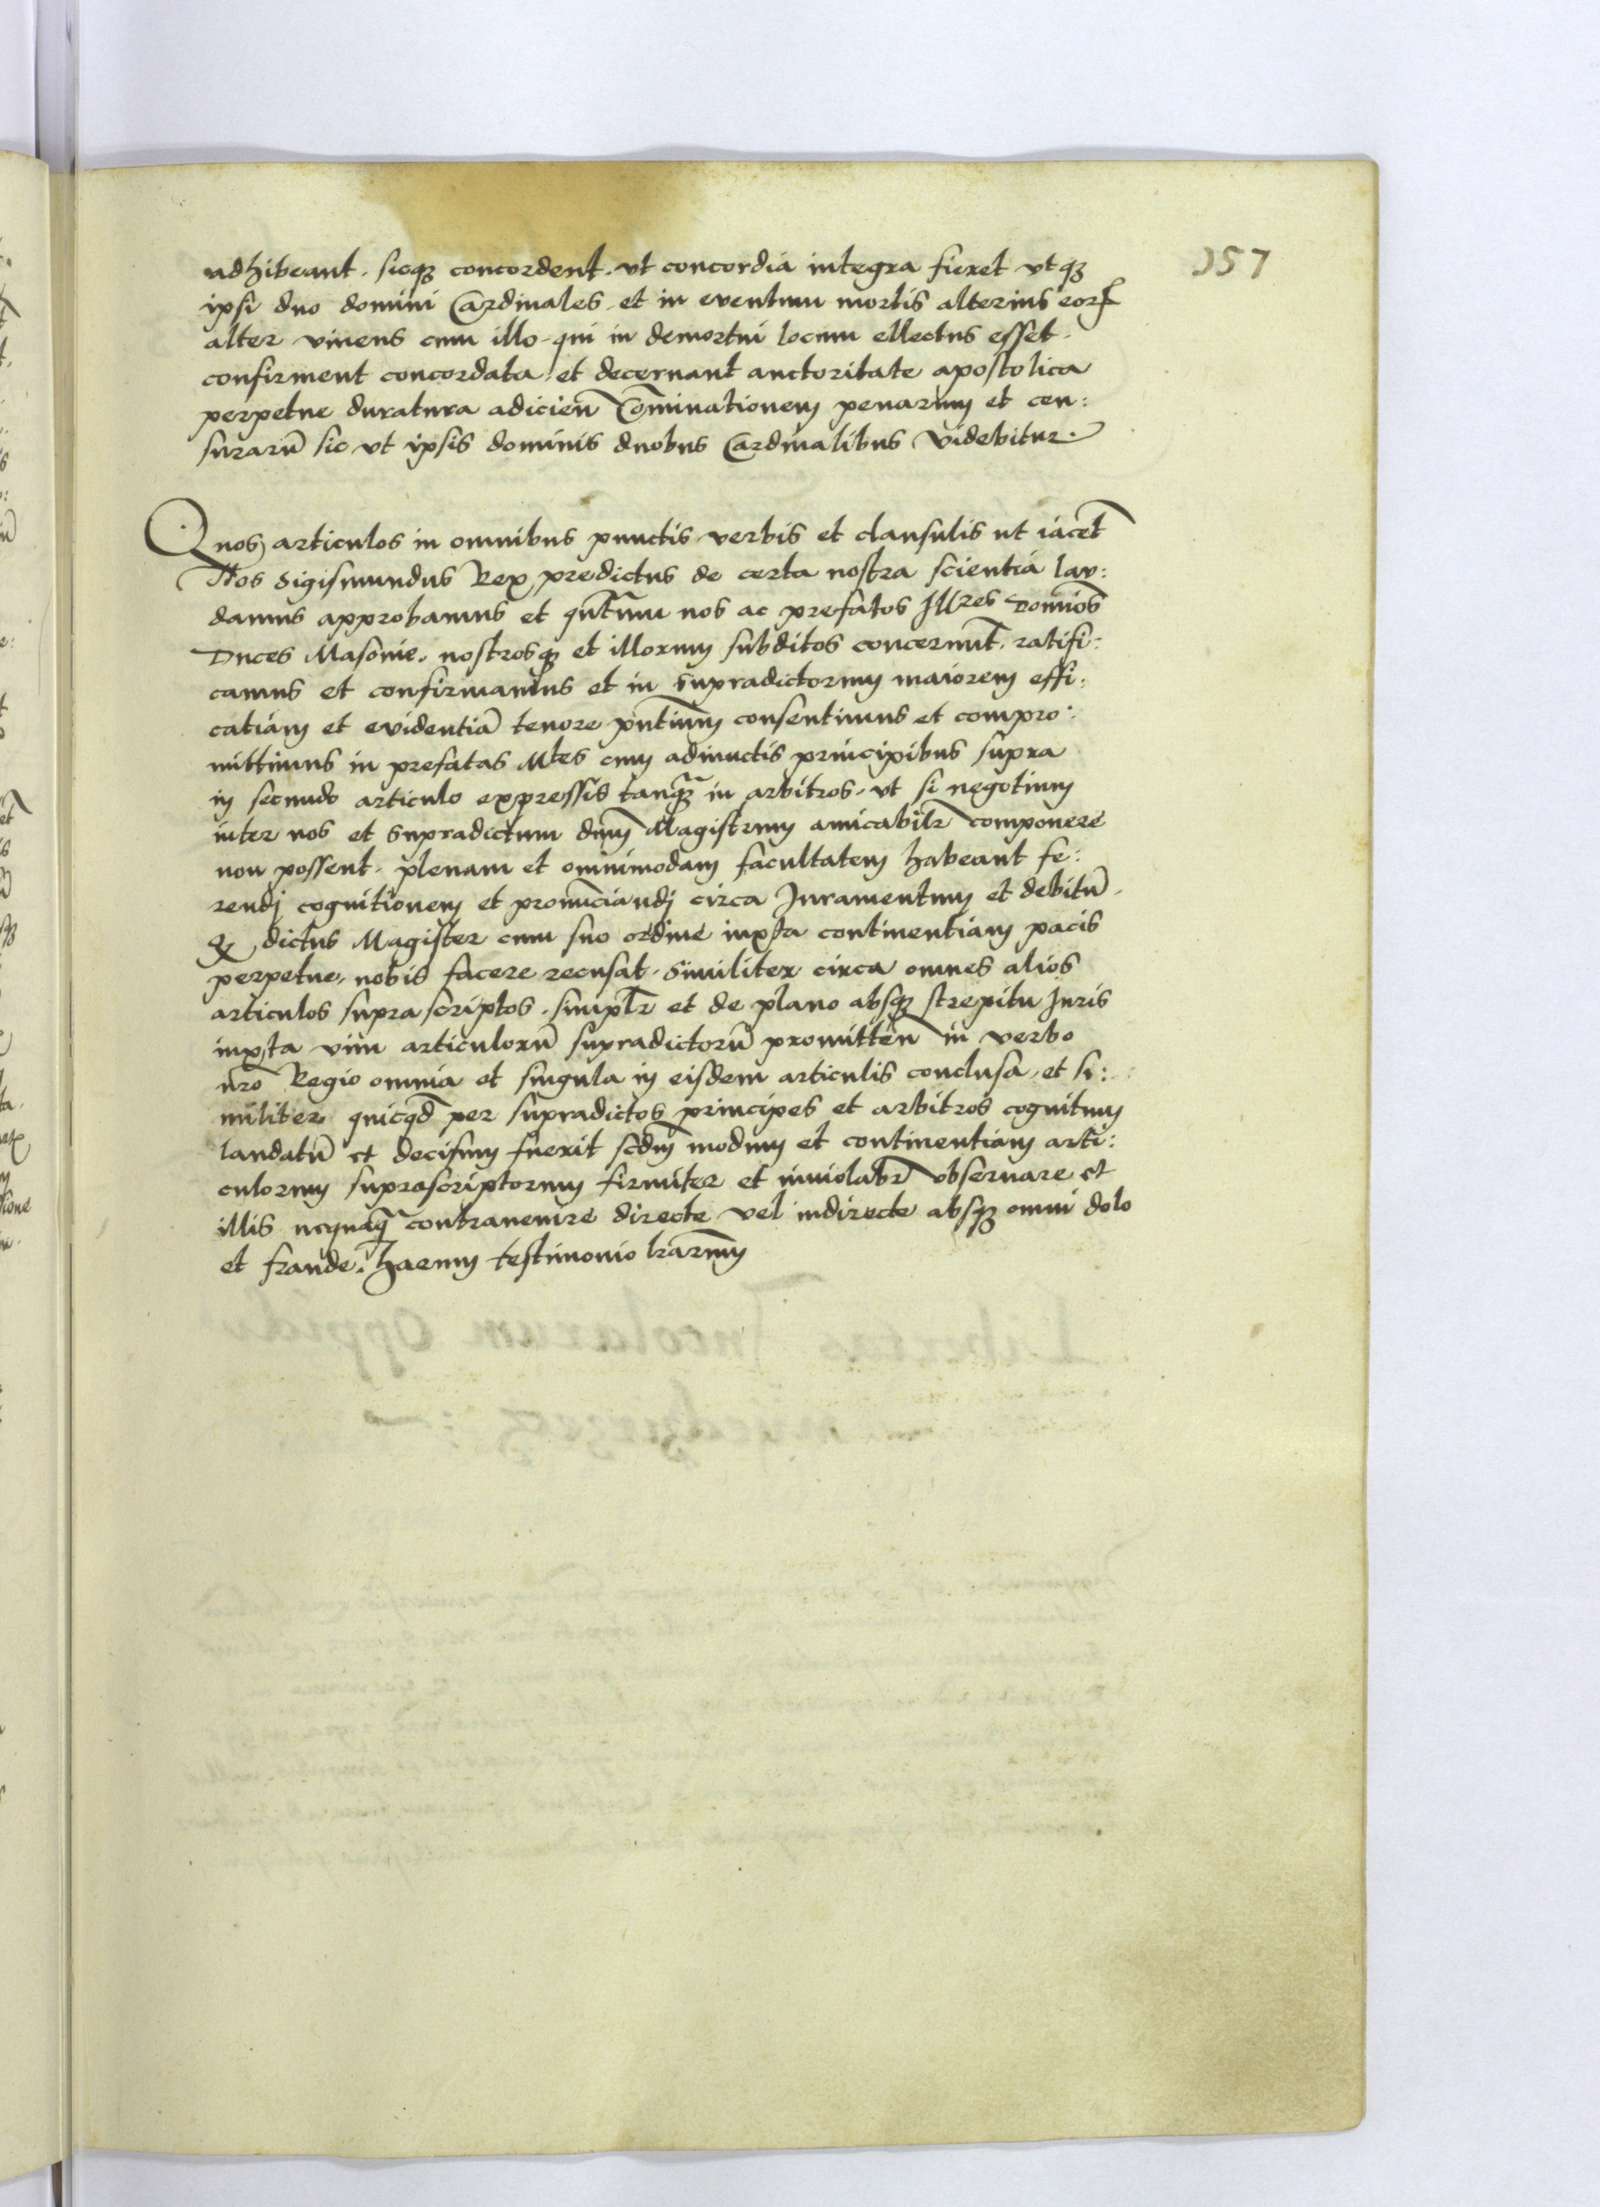 357
adhibeant. sicqȝ concordent. vt concordia integra fieret vtqȝ
ipsi duo domini Cardinales. et in eventum mortis alterius eorꝝ
alter vivens cum illo. qui in demortui locum ellectus esset.
confirment concordata et decernant auctoritate apostolica
perpetue duratura adicien̄ Cōminationem penarum et cen:
surarū sic vt ipsis dominis duobus Cardinalibus videbitur.
Quos articulos in omnibus punctis verbis et clausulis ut iacēt
Nos Sigismundus Rex predictus de certa nostra scientia lau:
damus approbamus et qn̄tum nos ac prefatos Illres Domīos
Duces Masovie. nostrosqȝ et illorum subditos concernūt. ratifi:
camus et confirmamus et in supradictorum maiorem effi:
catiam et evidentiā tenore pn̄tium consentimus et compro:
mittimus in prefatas Mtes cum adiunctis principibus supra
in secundo articulo expressis tanqȝ in arbitros. vt si negotium
inter nos et supradictum dn̄m Magistrum amicabilr̄ componere
non possent. plenam et omnimodam facultatem habeant fe:
rendi cognitionem et pronūciandi circa Juramentum et debitū.
qȝ dictus Magister cum suo ordine iuxta continentiam pacis
perpetue. nobis facere recusat. Similiter circa omnes alios
articulos supra scriptos. simplr̄ et de plano absqȝ strepitu Juris
iuxta vim articulorū supradictorū promitten̄ in verbo
nr̄o Regio omnia et singula in eisdem articulis conclusa. et si:
militer quicqd̄ per supradictos principes et arbitros cognitum
laudatū et decisum fuerit scd̄m modum et continentiam arti:
culorum suprascriptorum firmiter et inviolabr̄ observare et
illis nequaqȝ contravenire directe vel indirecte absqȝ omni dolo
et fraude. harum testimonio lr̄arum